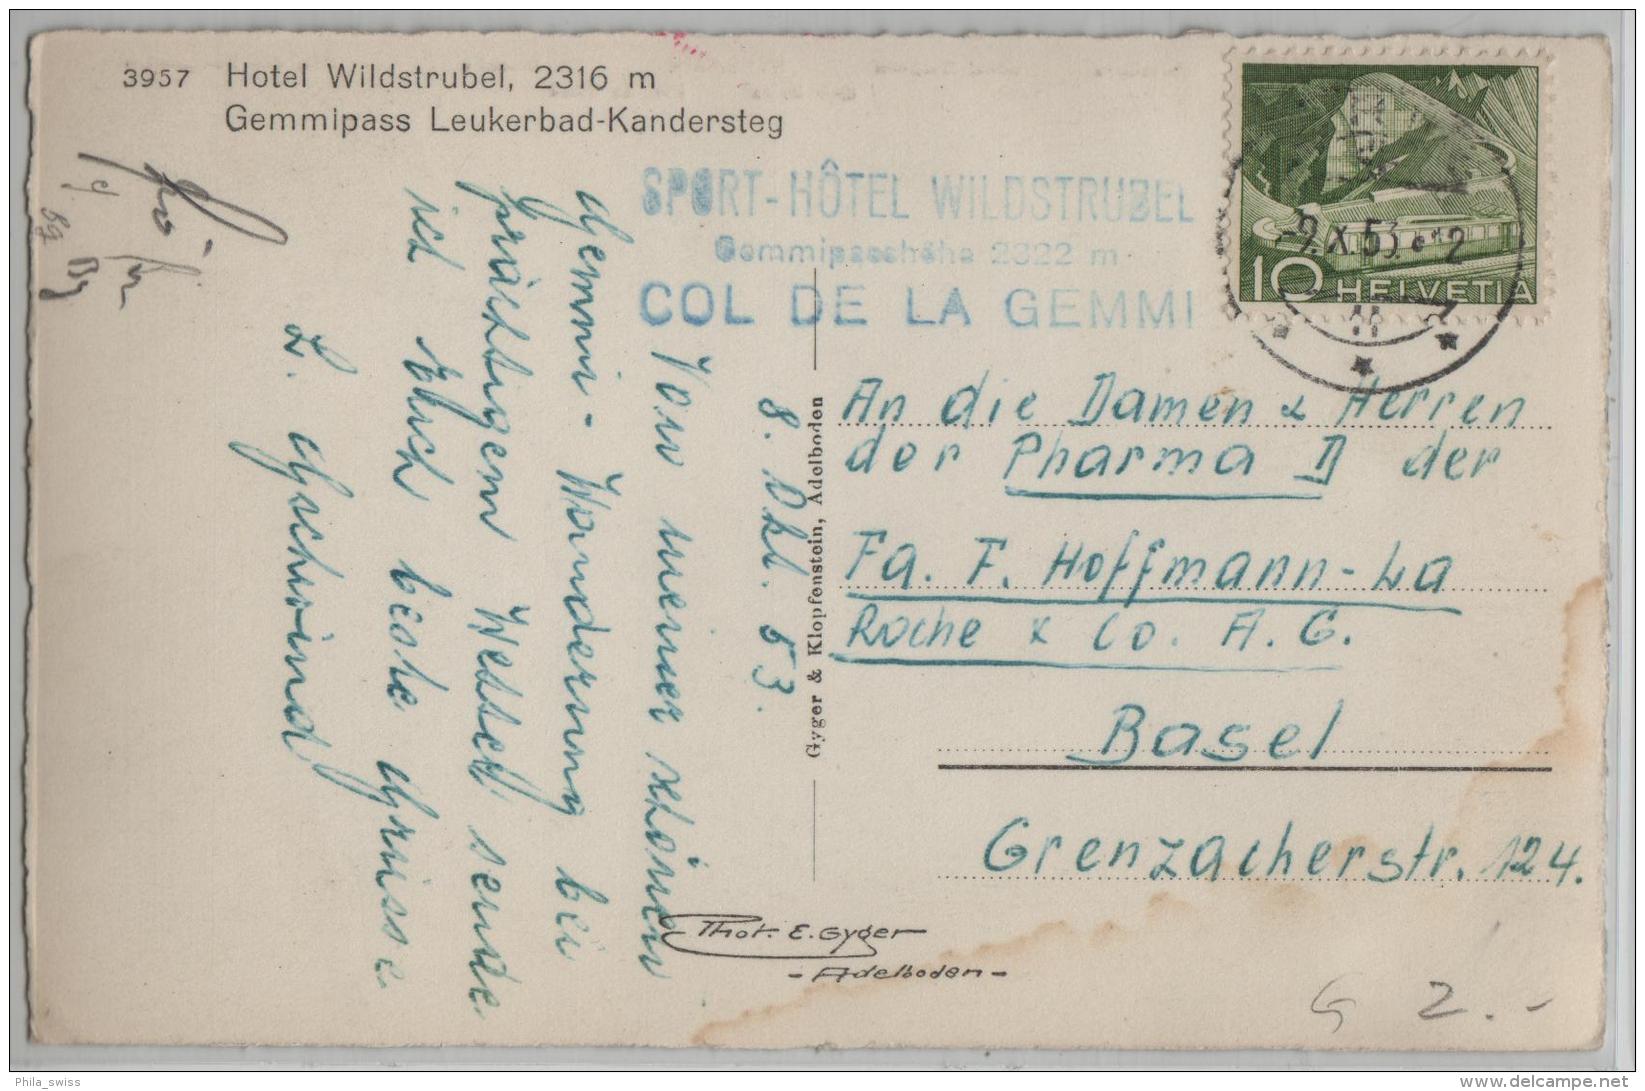 3957 Hotel Wildstrubel, 2316 m
Gemmipass Leukerbad-Kandersteg
SPORT-HÔTEL WILDSTRUBEL
Gemmipasshöhe 2322 m
COL DE LA GEMMI
10 HELVETIA
-9.X.53.
8. Okt. 53.
Von meiner schönen
Gemmi-Wanderung bei
prächtigem Wetter sende
ich Euch beste Grüsse
L. Gschwind
Gyger & Klopfenstein, Adelboden
An die Damen & Herren
der Pharma D der
Fa. F. Hoffmann-La
Roche & Co. A.G.
Basel
Grenzacherstr. 124.
Phot. E. Gyger
- Adelboden -
G 2.-
Phila_swiss
delcampe.net